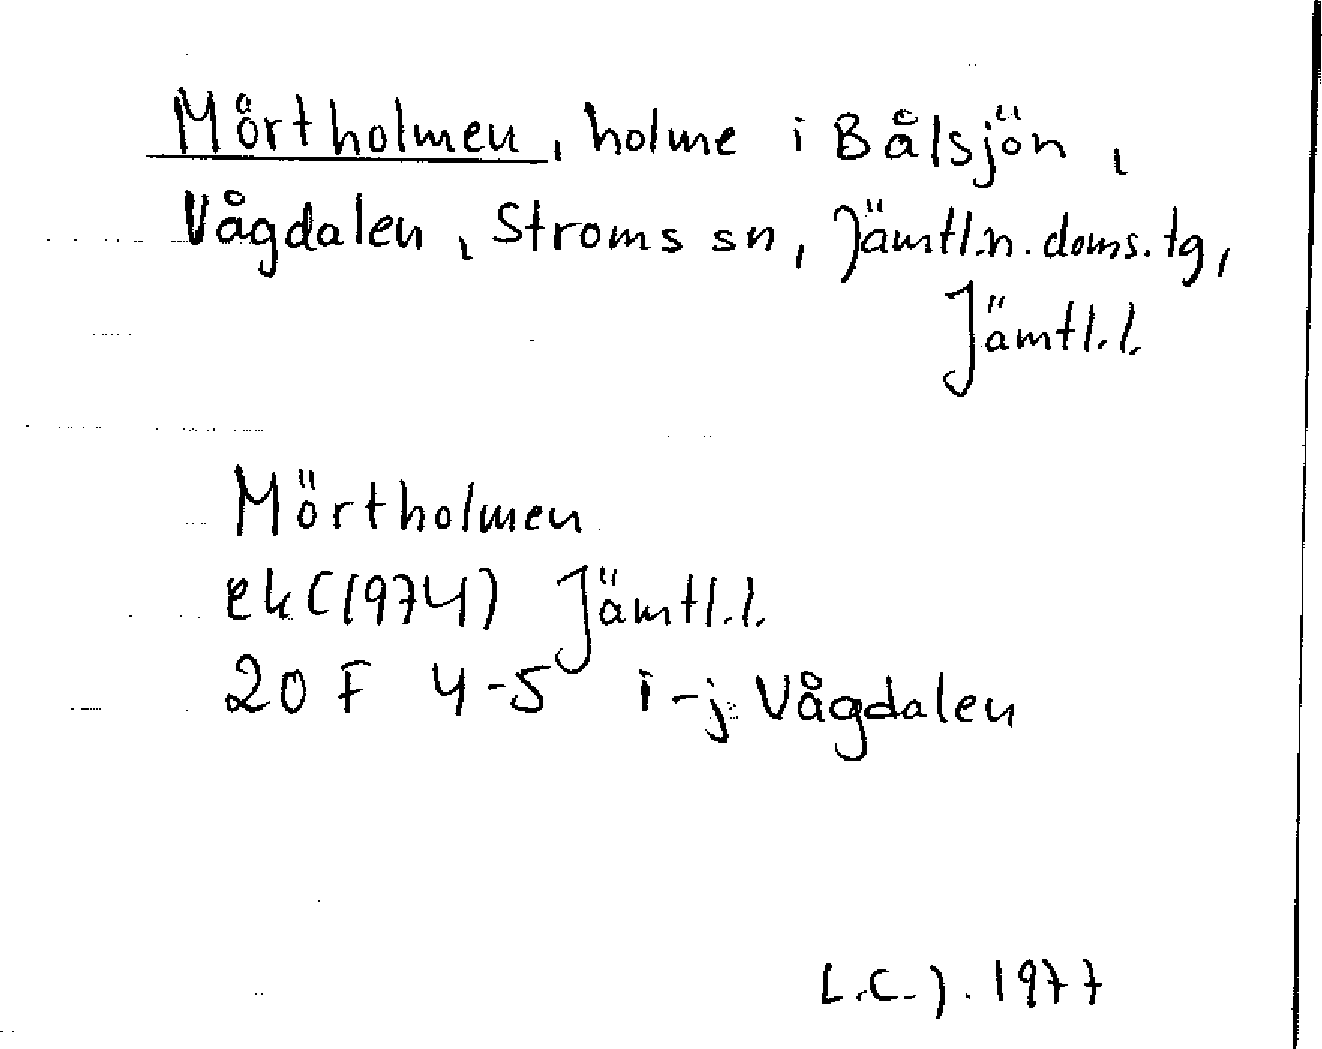 Mörtholmen, holme i Bålsjön,
Vågdalen, Ströms sn, Jämtl.n.doms.tg,
Jämtl.l.
Mörtholmen
ek (1974) Jämtl.l.
20 F 4-5 i-j Vågdalen
L.C.J. 1977